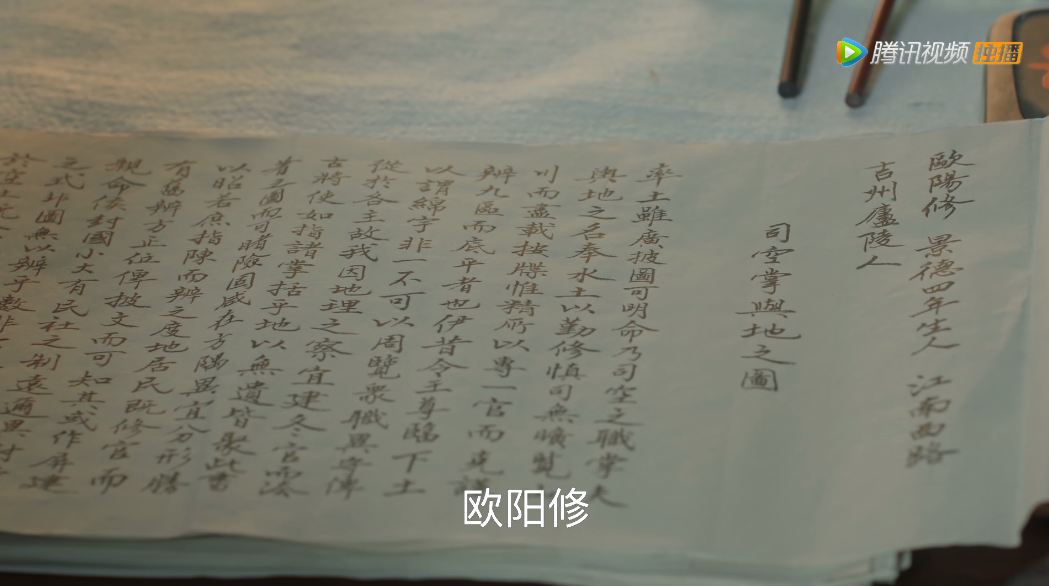 腾讯视频 独播
歐陽修 景德四年生人 江南西路
吉州廬陵人
司空掌輿地之圖
率土雖廣披圖可明命乃司空之職掌夫
輿地之名奉水土以勤修慎司無曠覽山
川而盡載按牒惟精所以專一官而克謹
辨九區而底平者也伊昔令王尊臨下土
以謂綿宇非一不可以周覽衆職異守俾
從於各主故我因地理之察宜建冬官而法
古將使如指諸掌括乎地以無遺皆聚此書
著之圖而可睹險固咸在方隅異宜分形勝
以昭若庶指陳而辨之度地居民既修官而
有爲辨方正位俾披文而可知其或作屏建
親命侯封國小大有民社之制遠邇異封
之式非圖無以辨乎數非
於空土
欧阳修